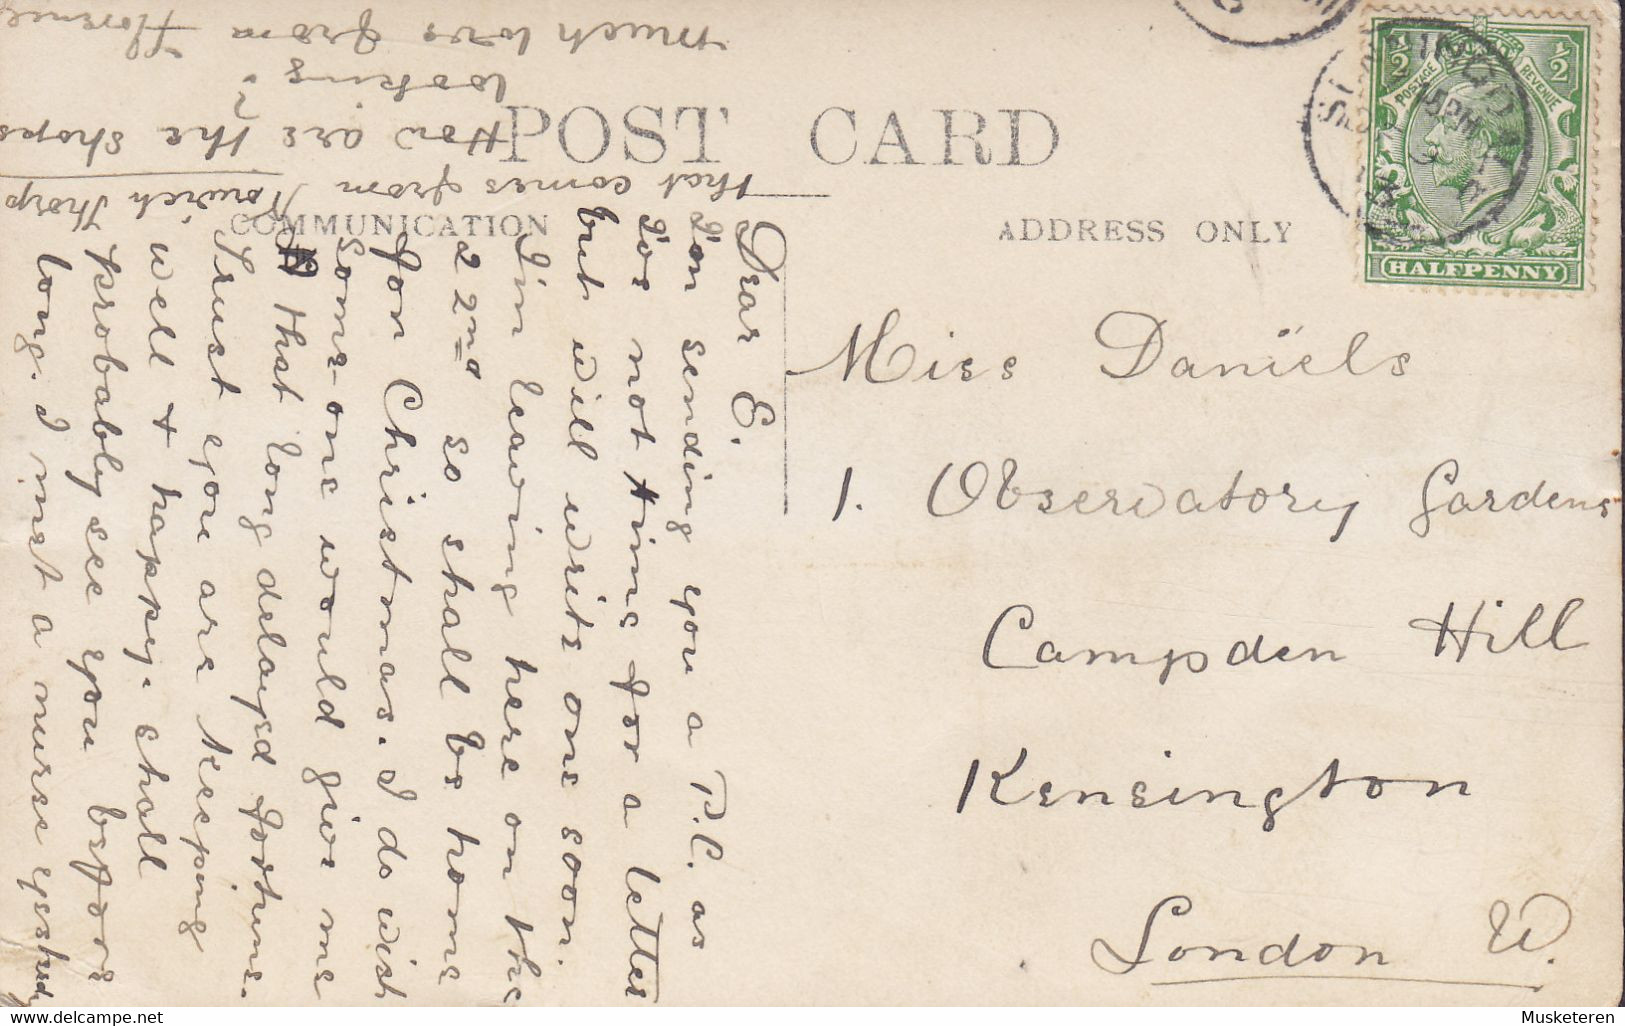 POST CARD
COMMUNICATION
ADDRESS ONLY
½ POSTAGE REVENUE ½
HALFPENNY
Miss Daniels
1. Observatory Gardens
Campden Hill
Kensington
London W.
Dear E.
I'm sending you a P.C. as
I've not time for a letter
but will write one soon.
I'm leaving here on the
22nd so shall be home
for Christmas. I do wish
some-one would give me
that long delayed fortune.
Trust you are keeping
well & happy. shall
probably see you before
long. I met a nurse yesterday
that comes from Norwich Thorp
How are the shops
looking?
Much love from Florence
Musketeren
www.delcampe.net